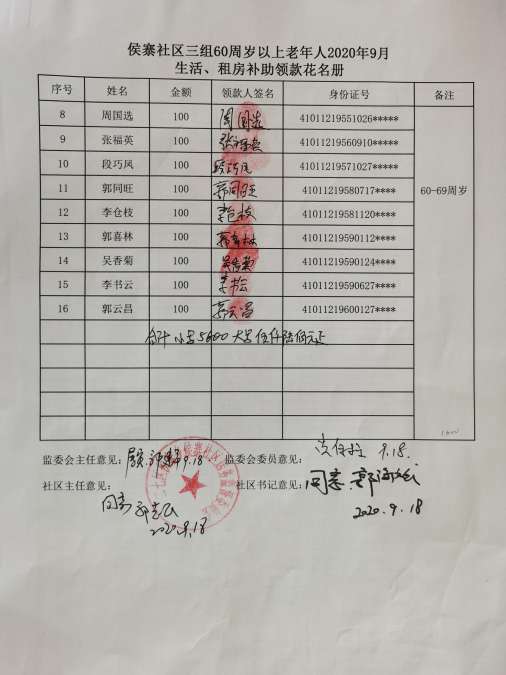 侯寨社区三组60周岁以上老年人2020年9月
生活、租房补助领款花名册
序号 姓名 金额 领款人签名 身份证号 备注
8 周国选 100 周国选 41011219551026*****
9 张福英 100 张福英 41011219560910*****
10 段巧凤 100 段巧凤 41011219571027*****
11 郭同旺 100 郭同旺 41011219580717**** 60-69周岁
12 李仓枝 100 李仓枝 41011219581120****
13 郭喜林 100 郭喜林 41011219590112****
14 吴香菊 100 吴香菊 41011219590124****
15 李书云 100 李书云 41011219590627****
16 郭云昌 100 郭云昌 41011219600127****
合计 小写5600 大写伍仟陆佰元正
监委会主任意见: 9.18 监委会委员意见: 9.18.
社区主任意见: 同意 社区书记意见: 同意
2020.9.18 2020.9.18